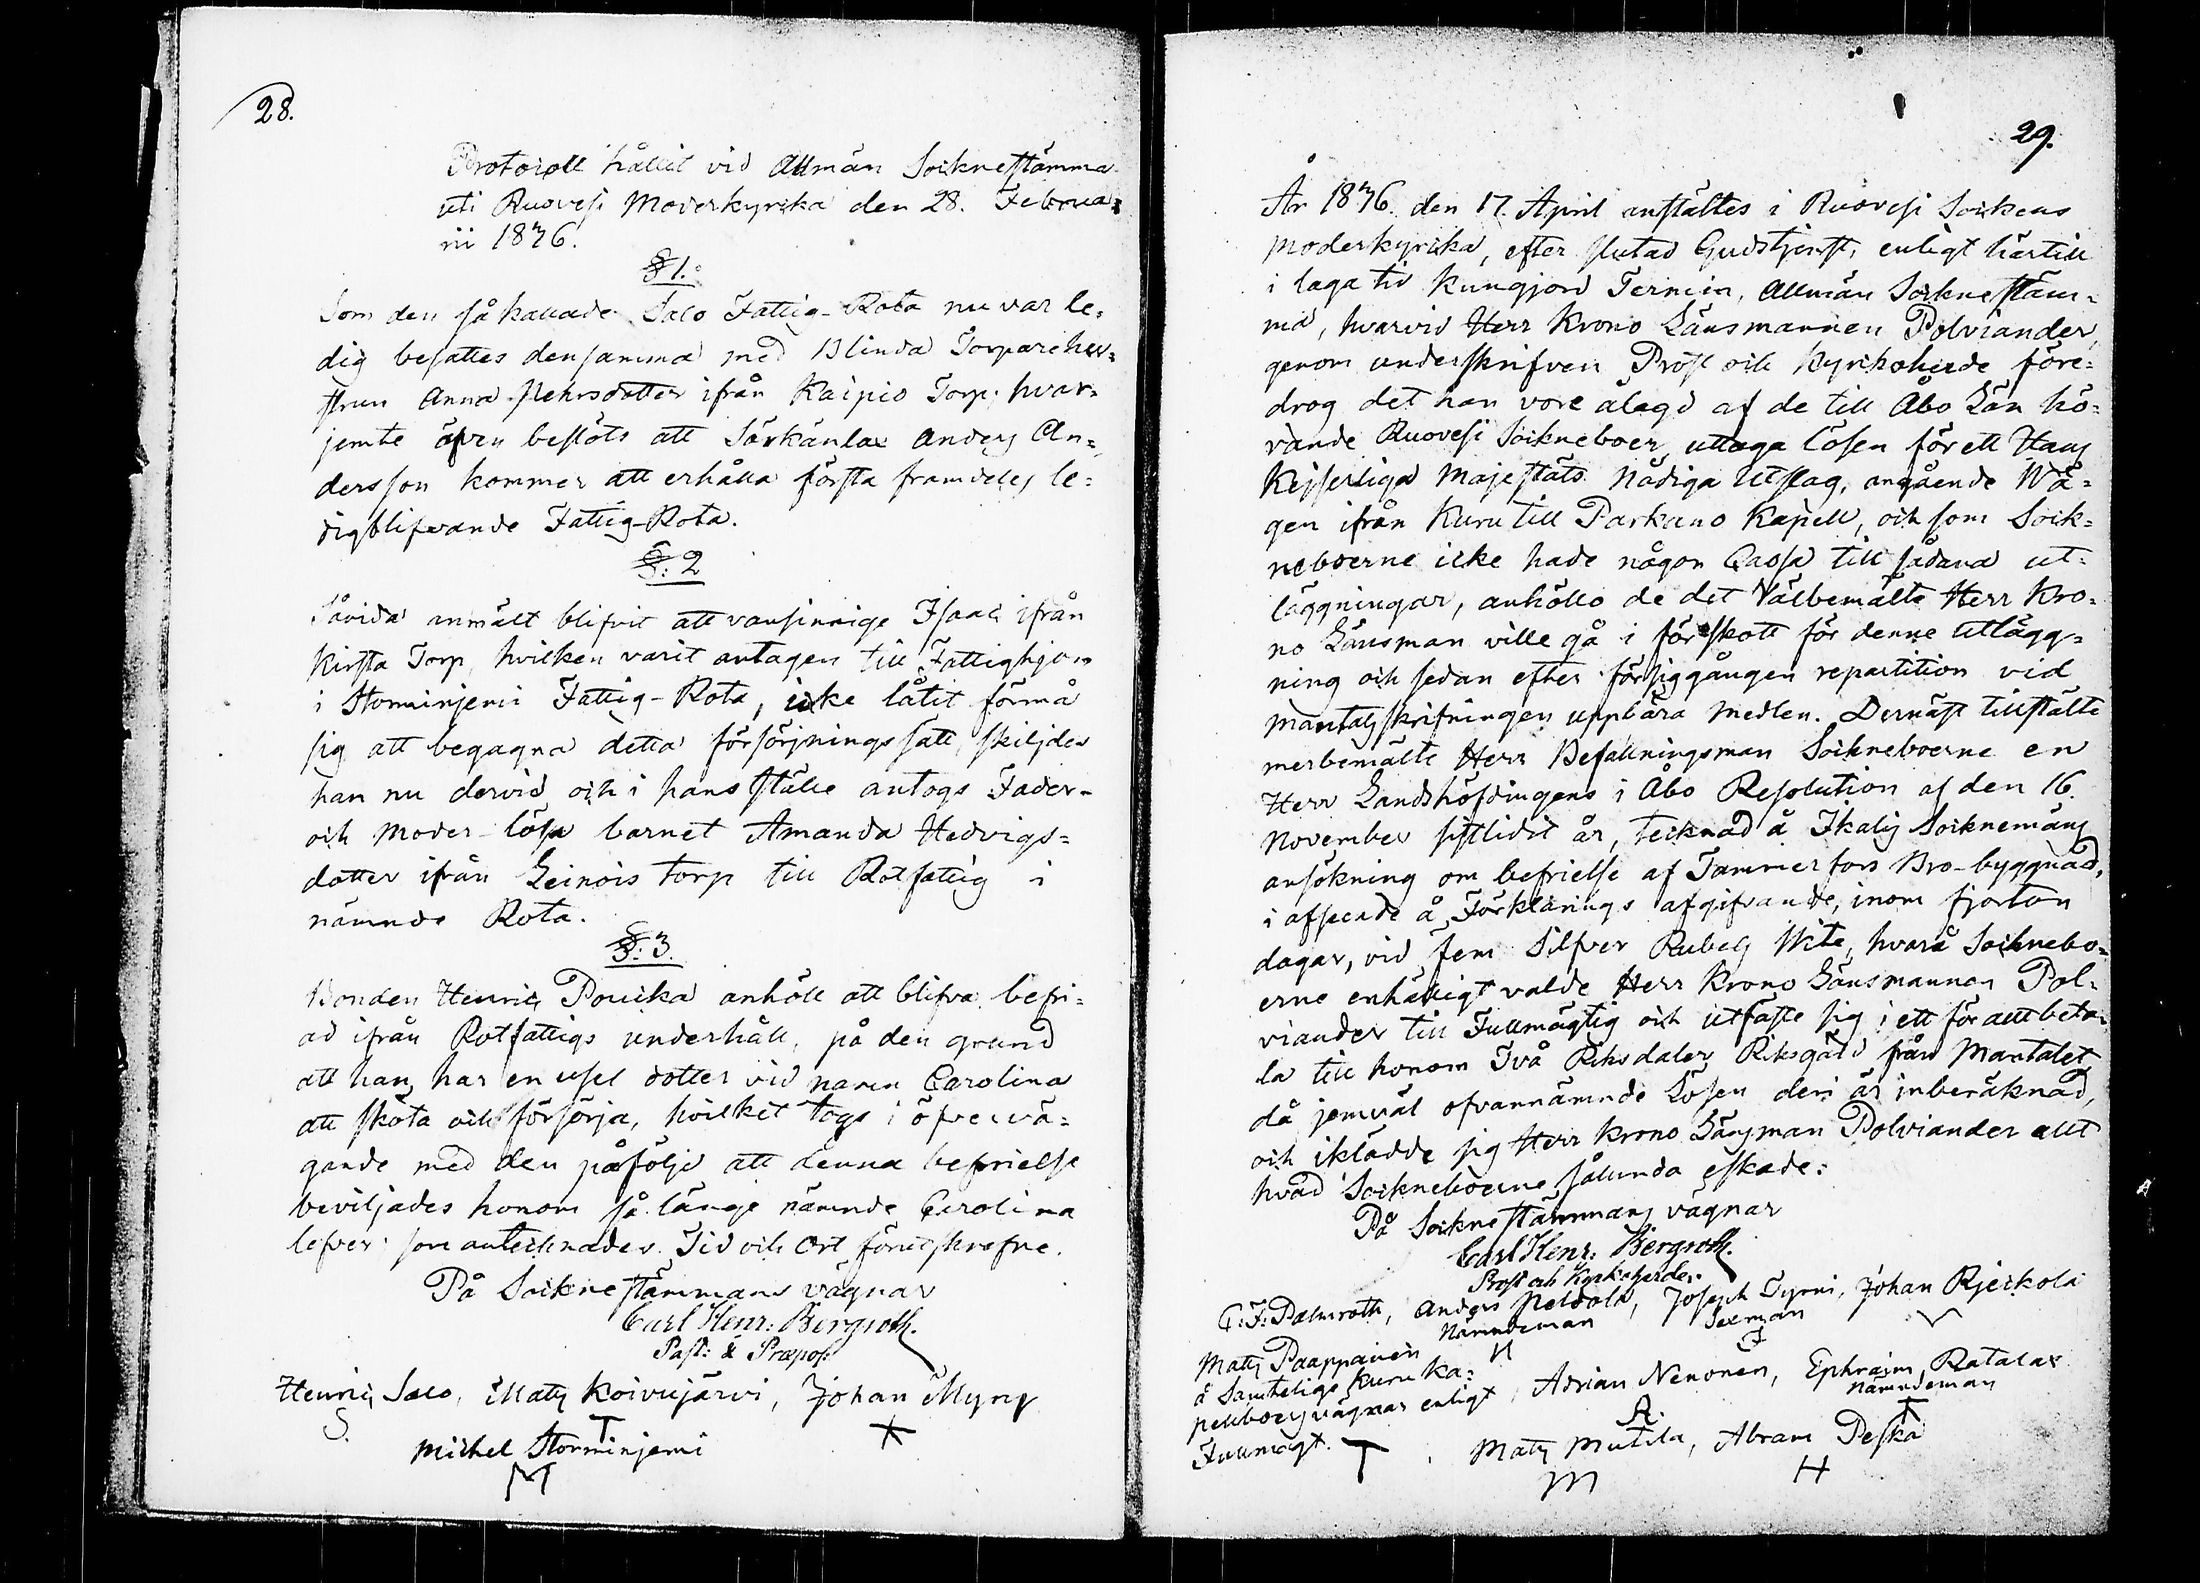 28.
Protocoll hållit vid Allmän Sockneſtämma
uti Ruoveſi Moderkyrcka den 28. Februa=
rii 1836.
§ 1.
Som den ſå kallade Salo Fattig-Rota nu var le=
dig beſattes denſamma med Blinda Torparehu=
ſtrun Anna Pehrsdotter ifrån Kaipio Torp; hvar=
jemte äfven beſlöts att Särkänlax Anders An=
dersſon kommer att erhålla förſta framdeles le=
digblifvande Fattig-Rota.
§: 2
Såvida anmält blifvit att vanſinnige Iſaac ifrån
Kirſta Torp, hvilken varit antagen till Fattighjon
i Storminjemi Fattig-Rota, icke låtit förmå
ſig att begagna detta förſörjningsſätt, ſkiljdes
han nu dervid och i hans ſtälle antogs Fader-
och Moder-löſa barnet Amanda Hedvigs=
dotter ifrån Leinois torp till Rotfattig i
nämnde Rota.
§: 3.
Bonden Henric Pouka anhöll att blifva befri=
ad ifrån Rotfattigs underhåll, på den grund
att han har en uſel dotter vid namn Carolina
att ſköta och förſörja, hvilket togs i öfvervä=
gande med den påföljd att denna befrielſe
beviljades honom ſå länge nämnde Carolina
lefver; ſom antecknades. Tid och Ort förutſkrefne.
På Sockneſtämmans vägnar
Carl Henr: Bergroth.
Paſt: & Præpoſ:
Henric Salo, Mats Koivujärvi, Johan Myry
S. T
Michel Storminjemi
M
29.
År 1836. den 17. April anſtältes i Ruoveſi Sockens
Moderkyrcka, efter ſlutad Gudstjenſt, enligt härtill
i laga tid kungjord Termin, Allmän Sockneſtäm=
ma, hvarvid Herr Krono Länsmannen Polviander,
genom underſkrifven Proſt och Kyrkoherde före=
drog det han vore ålagd af de till Åbo Län hö=
rande Ruoveſi Sockneboer uttaga löſen för ett Hans
Kejſerliga Majeſtäts Nådiga Utſlag, angående Wä=
gen ifrån Kuru till Parkano Kapell, och ſom Sock=
neboerne icke hade någon Casſa till ſådana ut=
läggningar, anhöllo de det Välbemälte Herr Kro=
no Länsman ville gå i förſkott för denne utlägg=
ning och ſedan efter förſiggången repartition vid
Mantalsſkrifningen uppbära medlen. Dernäſt tillſtälte
merbemälte Herr Befallningsman Sockneboerne en
Herr Landshöfdingens i Åbo Reſolution af den 16.
November ſiſtlidit år, tecknad å Ikalis Socknemäns
anſökning om befrielſe af Tammerfors Bro-byggnad,
i afſeende å Förklarings afgifvande, inom fjorton
dagar, vid fem Silfver Rubels Wite, hvarå Sockenbo=
erne enhälligt valde Herr Krono Länsmannen Pol=
viander till Fullmägtig och utfäſte ſig i ett för allt beta=
la till honom Två Riksdaler Riksgäld från Mantalet,
då jemväl ofvannämnde Löſen deri är inberäknad,
och iklädde ſig Herr Krono Länsman Polviander allt
hvad Sockneboerne ſålunda eſkade:
På Sockneſtämmans vägnar
Carl Henr: Bergroth.
Proſt och Kyrkoherde.
C: F: Palmroth, Anders Peldola, Joſeph Tyrni, Johan Rjeckola
Nämndeman Sexman
Mats Paappainen
å Samtelige Kuru Ka=
pellboers vägnar enligt, Adrian Nenonen, Ephraim Ratalax
Nämndeman
Fullmagt. T A.
Mats Mutila, Abram Peſka
M H